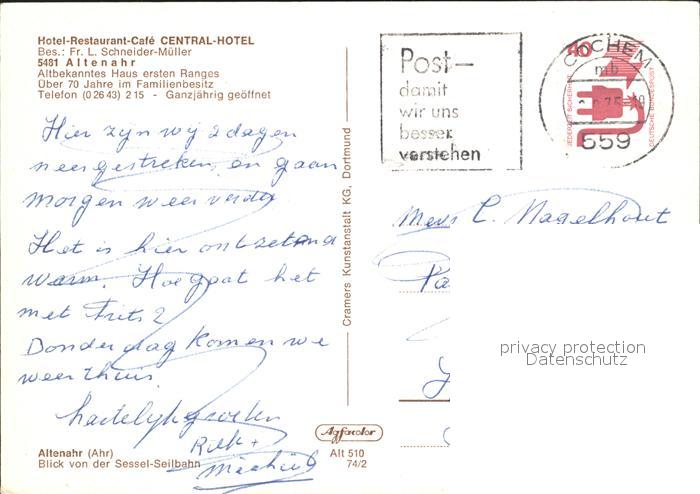 Hotel-Restaurant-Café CENTRAL-HOTEL
Bes.: Fr. L. Schneider-Müller
5481 Altenahr
Altbekanntes Haus ersten Ranges
Über 70 Jahre im Familienbesitz
Telefon (0 26 43) 2 15 - Ganzjährig geöffnet
Hier zyn wy 2 dagen
neergestreken, en gaan
morgen weer verder
Het is hier ontzettend
warm. Hoe gaat het
met Frits?
Donderdag komen we
weer thuis.
hartelyk groeten
Altenahr (Ahr)
Blick von der Sessel-Seilbahn
Agfacolor
Alt 510
74/2
Cramers Kunstanstalt KG, Dortmund
Post-
damit
wir uns
besser
verstehen
COCHEM
mb
559
40
JEDERZEIT SICHERHEIT
DEUTSCHE BUNDESPOST
C. Nagelhout
privacy protection
Datenschutz